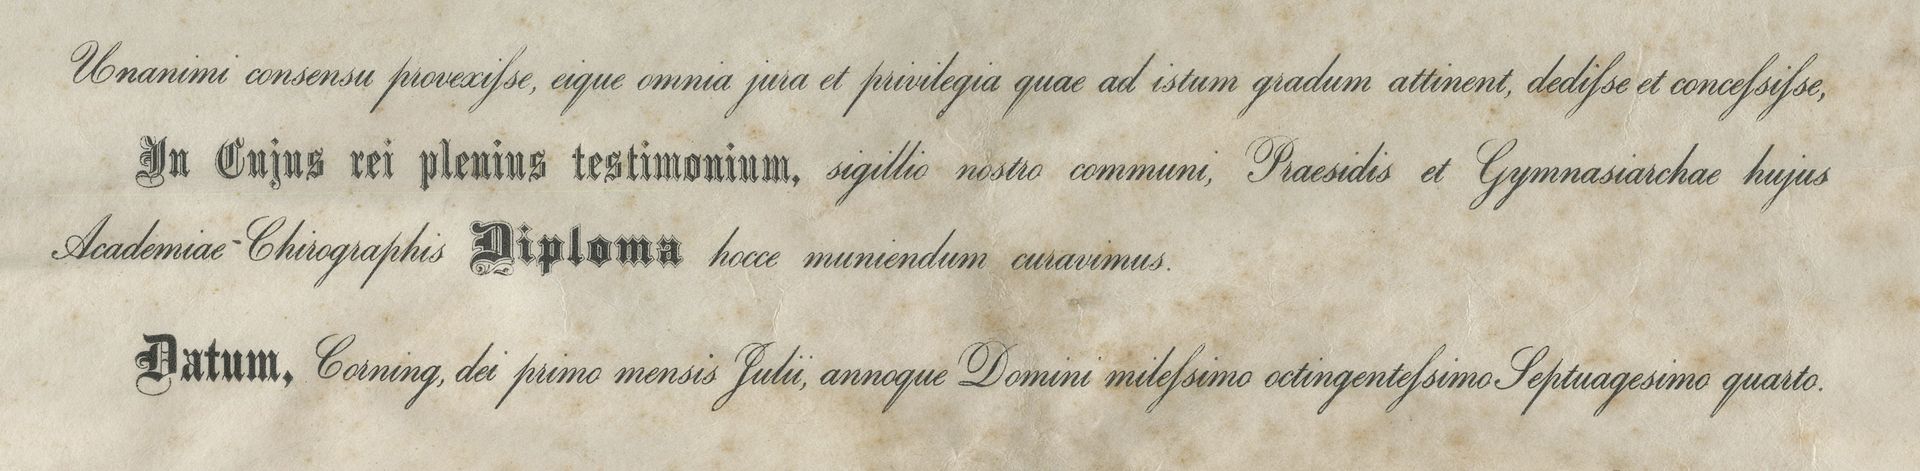 Unanimi consensu provexiſse, eique omnia jura et privilegia quae ad istum gradum attinent, dediſse et conceſsiſse,
In Cujus rei plenius testimonium, sigillio nostro communi, Praesidis et Gymnasiarchae hujus
Academiae-Chirographis Diploma hocce muniendum curavimus.
Datum, Corning, dei primo mensis Julii, annoque Domini mileſsimo octingenteſsimo Septuagesimo quarto.